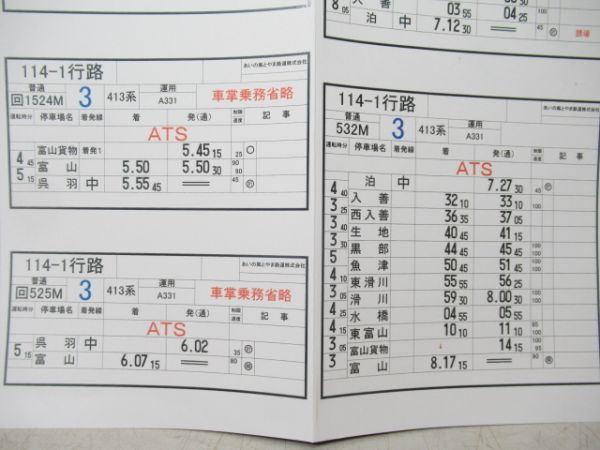 114-1行路
あいの風とやま鉄道株式会社
普通
回1524M 3 413系 運用 A331 車掌乗務省略
運転時分 停車場名 着発線 着 発(通) 制限速度 記事
ATS
富山貨物 着発1 5.45 15 25
4 45 富山 5.50 5.50 30 90 90
5 15 呉羽 中 5.55 45 45
114-1行路
あいの風とやま鉄道株式会社
普通
回525M 3 413系 運用 A331 車掌乗務省略
運転時分 停車場名 着発線 着 発(通) 制限速度 記事
ATS
呉羽 中 6.02 35
5 15 富山 6.07 15 80
8 05 入善 03 55 04 25
泊 中 7.12 30
114-1行路
あいの風とやま鉄道株式会社
普通
532M 3 413系 運用 A331
運転時分 停車場名 着発線 着 発(通) 制限速度 記事
ATS
泊 中 7.27 30 45
4 40 入善 32 10 33 10
3 25 西入善 36 35 37 05
3 生地 40 45 41 15
3 黒部 44 45 45 45
5 魚津 50 45 51 45
4 東滑川 55 55 56 25
3 滑川 59 30 8.00 30
4 水橋 04 55 05 55
4 東富山 10 10 11 10
3 05 富山貨物 ↓ 14 15
3 富山 8.17 15 80